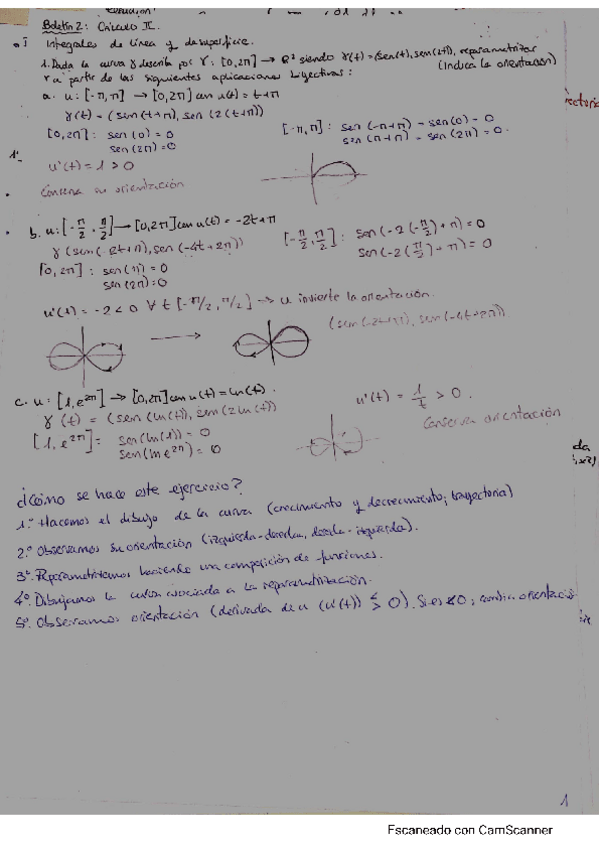 Boletín 2: Cálculo II.
Integrales de línea y de superficie.
1. Dada la curva γ descrita por γ: [0,2π] → R² siendo γ(t)=(sen(t), sen(2t)), reparametrizar
γ a partir de las siguientes aplicaciones biyectivas: (Indica la orientación)
a. u: [-π,π] → [0,2π] con u(t)=t+π
γ(t) = (sen(t+π), sen(2(t+π))
[0,2π]: sen(0)=0
sen(2π)=0
[-π,π]: sen(-π+π) = sen(0) = 0
sen(π+π) = sen(2π) = 0.
1º
u'(t)=1>0
Conserva su orientación
b. u: [-π/2, π/2] → [0,2π] con u(t) = -2t+π
γ(sen(-2t+π), sen(-4t+2π))
[0,2π]: sen(π)=0
sen(2π)=0
[-π/2, π/2]: sen(-2(-π/2)+π)=0
sen(-2(π/2)+π)=0
u'(t) = -2<0 ∀ t [-π/2, π/2] → u invierte la orientación.
(sen(-2t+π), sen(-4t+2π))
c. u: [1,e^{2π}] → [0,2π] con u(t)=ln(t).
γ(t) = (sen(ln(t)), sen(2ln(t))
[1,e^{2π}] = sen(ln(1)) = 0
sen(ln e^{2π}) = 0
u'(t) = 1/t > 0.
Conserva orientación
da
¿Cómo se hace este ejercicio?
1º. Hacemos el dibujo de la curva (crecimiento y decrecimiento; trayectoria)
2º. Observamos su orientación (izquierda-derecha, derecha-izquierda).
3º. Reparametrizamos haciendo una composición de funciones.
4º. Dibujamos la curva asociada a la reparametrización.
5º. Observamos orientación (derivada de u (u'(t)) ≤ > 0). Si es <0; cambia orientación
1
Escaneado con CamScanner